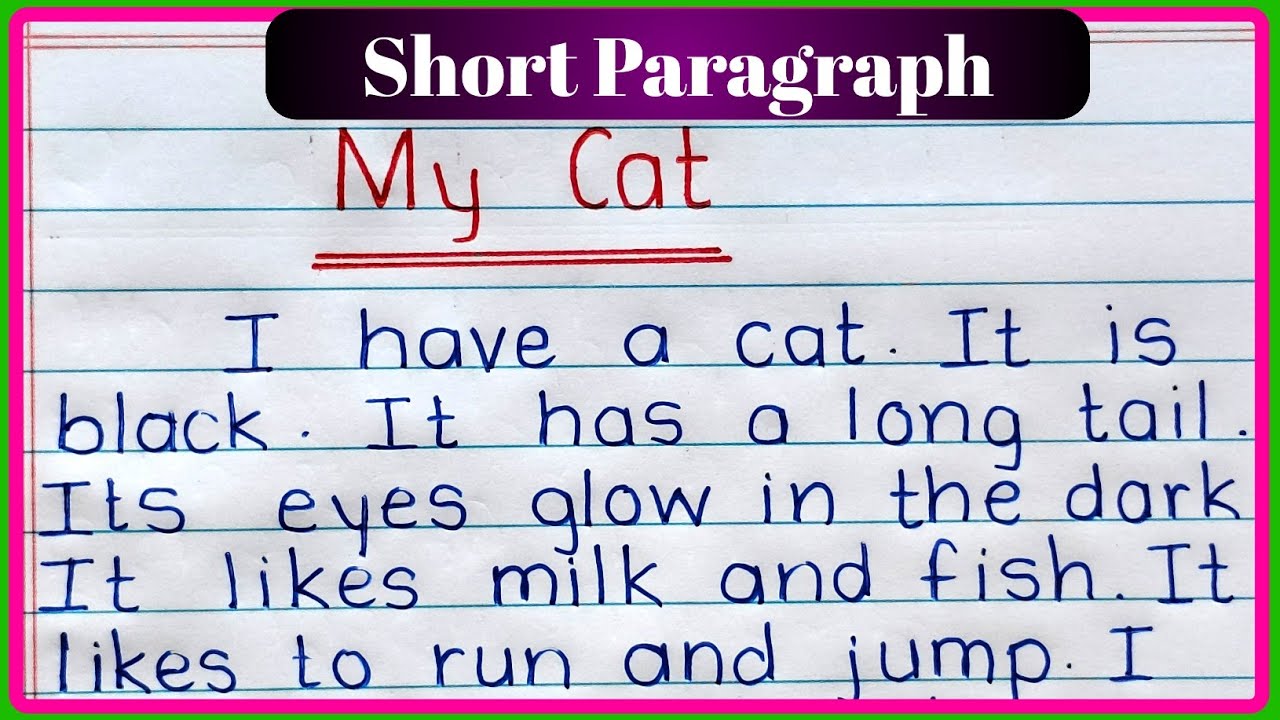 Short Paragraph
My Cat
I have a cat. It is
black. It has a long tail.
Its eyes glow in the dark
It likes milk and fish. It
likes to run and jump. I